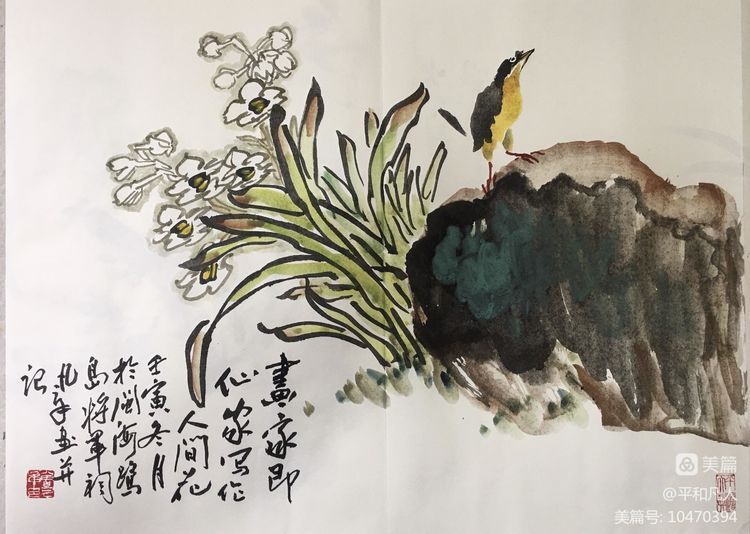 畫家即
仙家寫作
人間花
壬寅冬月
於闽海鹭
島將軍祠
凡平画并
记
美篇
@平和凡人
美篇号: 10470394